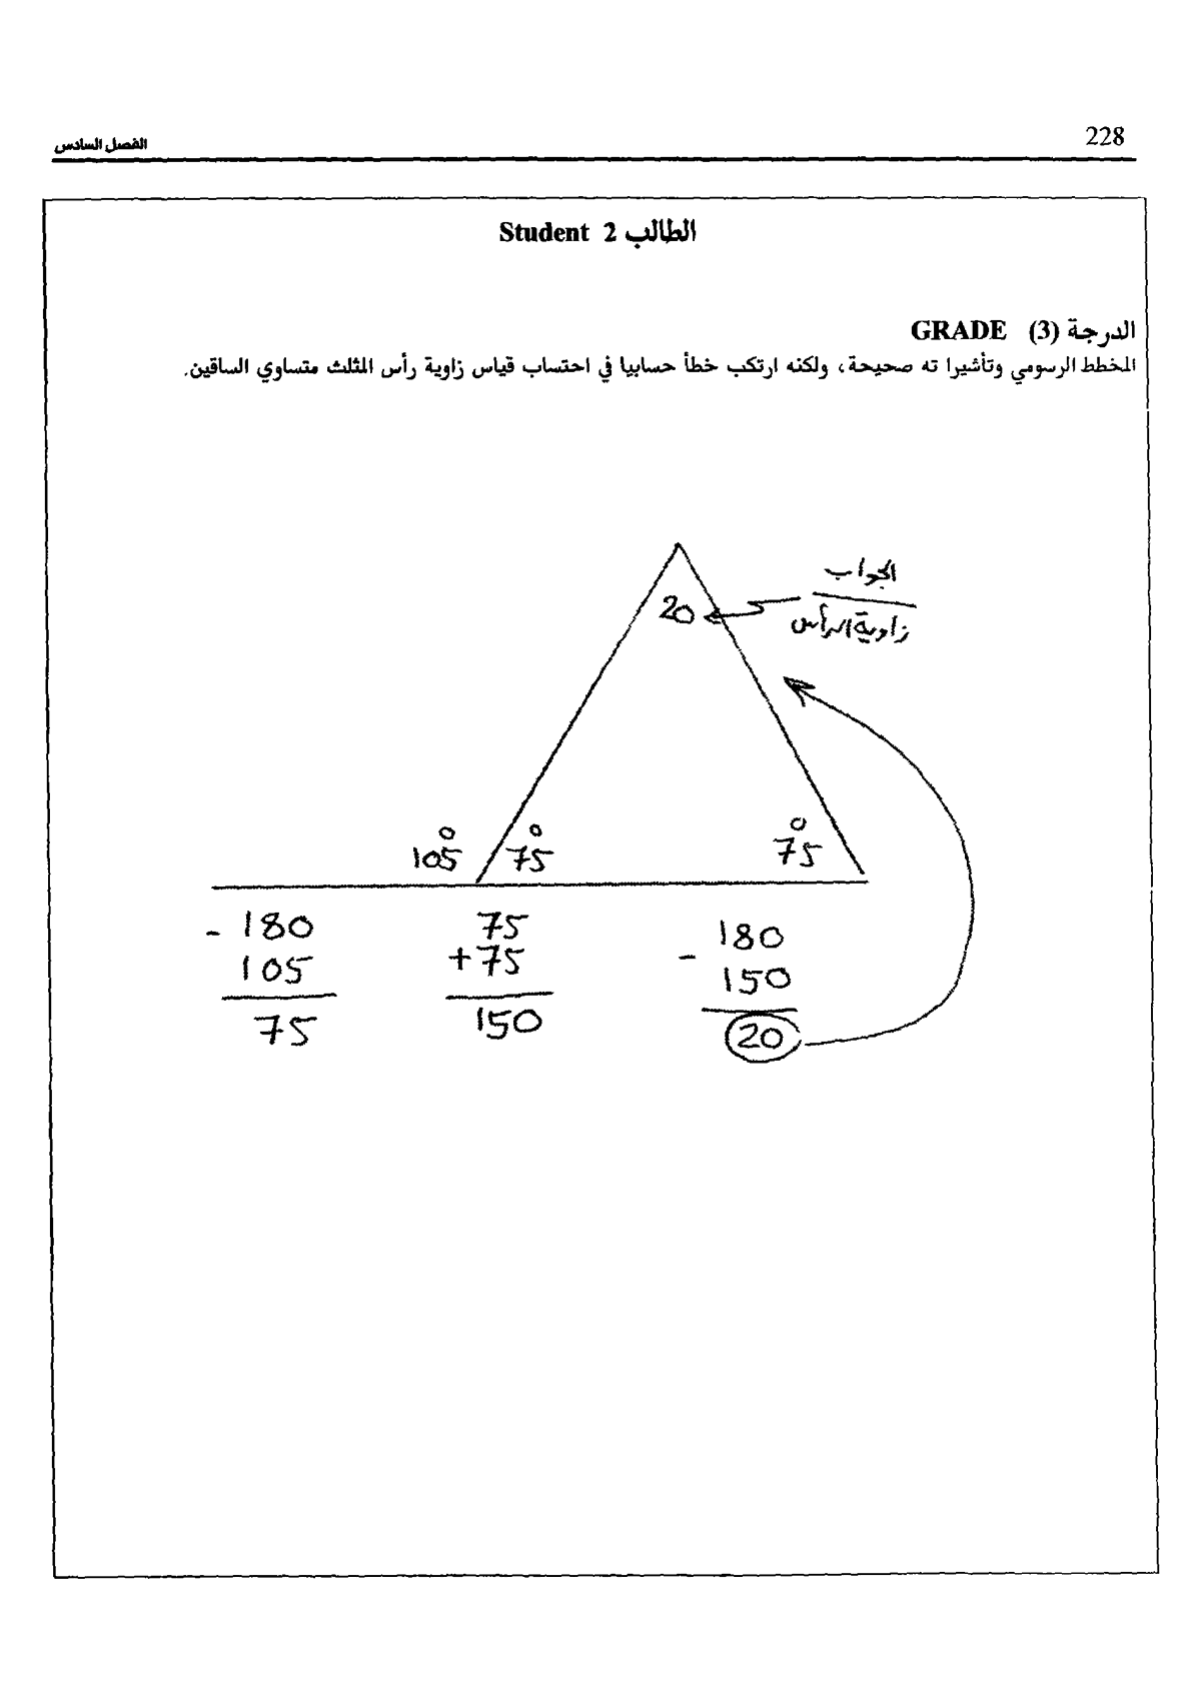 228
الفصل السادس
الطالب 2 Student
الدرجة (3) GRADE
المخطط الرسومي وتأشيرا ته صحيحة، ولكنه ارتكب خطأ حسابيا في احتساب قياس زاوية رأس المثلث متساوي الساقين.
الجواب
زاوية الرأس
20
105° 75° 75°
- 180
105
75
75
+ 75
150
- 180
150
20